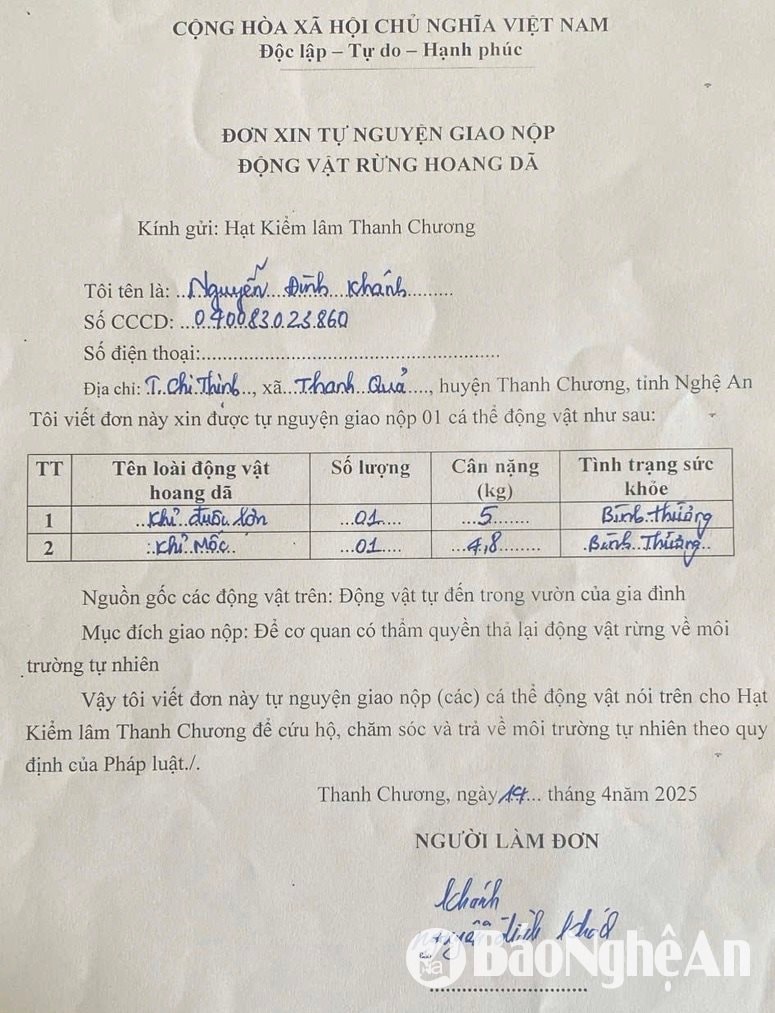 CỘNG HÒA XÃ HỘI CHỦ NGHĨA VIỆT NAM
Độc lập – Tự do – Hạnh phúc
ĐƠN XIN TỰ NGUYỆN GIAO NỘP
ĐỘNG VẬT RỪNG HOANG DÃ
Kính gửi: Hạt Kiểm lâm Thanh Chương
Tôi tên là: ...Nguyễn...Đình...Khánh.........
Số CCCD: ...040083023860
Số điện thoại:....................................................
Địa chỉ: T. Chi Thịnh.., xã...Thanh Quả...., huyện Thanh Chương, tỉnh Nghệ An
Tôi viết đơn này xin được tự nguyện giao nộp 01 cá thể động vật như sau:
TT Tên loài động vật hoang dã Số lượng Cân nặng (kg) Tình trạng sức khỏe
1 ...Khỉ đuôi lợn ...01.... ...5....... Bình thường
2 ..Khỉ Mốc.. ...01.... ...4,8........ .Bình...Thường..
Nguồn gốc các động vật trên: Động vật tự đến trong vườn của gia đình
Mục đích giao nộp: Để cơ quan có thẩm quyền thả lại động vật rừng về môi
trường tự nhiên
Vậy tôi viết đơn này tự nguyện giao nộp (các) cá thể động vật nói trên cho Hạt
Kiểm lâm Thanh Chương để cứu hộ, chăm sóc và trả về môi trường tự nhiên theo quy
định của Pháp luật./.
Thanh Chương, ngày ... tháng 4năm 2025
NGƯỜI LÀM ĐƠN
Khánh
Nguyễn Đình Khánh
BáoNghệAn